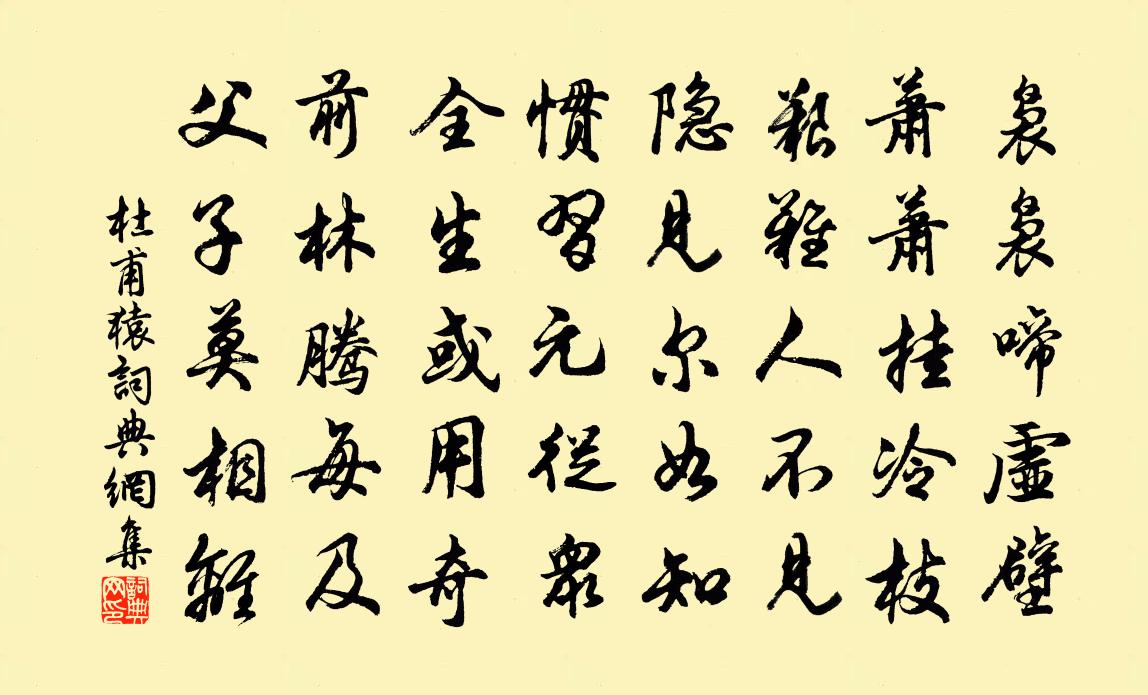 裊裊啼虛壁
蕭蕭挂冷枝
艱難人不見
隐見尔如知
慣習元從眾
全生或用奇
前林騰每及
父子莫相離
杜甫猿詞典網集